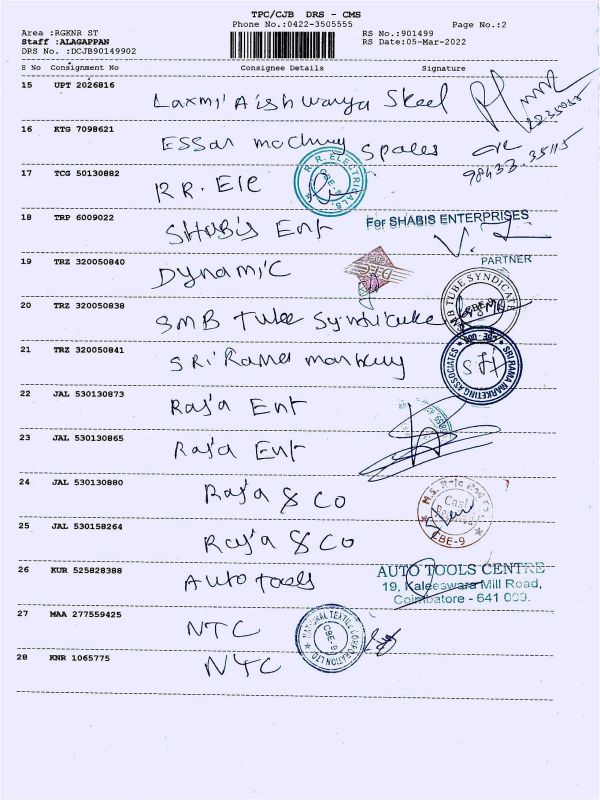 TPC/CJB DRS - CMS
Phone No.:0422-3505555
Page No.:2
Area :RGKNR ST
RS No.:901499
Staff :ALAGAPPAN
RS Date:05-Mar-2022
DRS No. :DCJB90149902
S No Consignment No Consignee Details Signature
15 UPT 2026816 Laxmi Aishwarya Steel
16 KTG 7098621 Essar machury spales
98433.35115
17 TCG 50130882 R.R. Ele
R.R. ELECTRICALS CBE-9
18 TRP 6009022 SHABIS Ent
For SHABIS ENTERPRISES
PARTNER
19 TRZ 320050840 Dynamic
DTC
20 TRZ 320050838 SMB Tube Syndicate
SMB TUBE SYNDICATE CBE-9
21 TRZ 320050841 SRi Rama
SRI RAMA MARKETING ASSOCIATES CBE-009
22 JAL 530130873 Raja Ent
23 JAL 530130865 Raja Ent
24 JAL 530130880 Raja & Co
CBE-9
25 JAL 530158264 Raja & Co
26 KUR 525828388 Auto tools
AUTO TOOLS CENTRE
19, Kaleeswara Mill Road,
Coimbatore - 641 009.
27 MAA 277559425 NTC
NATIONAL TEXTILE CORPORATION LTD. CBE-9
28 KNR 1065775 NTC